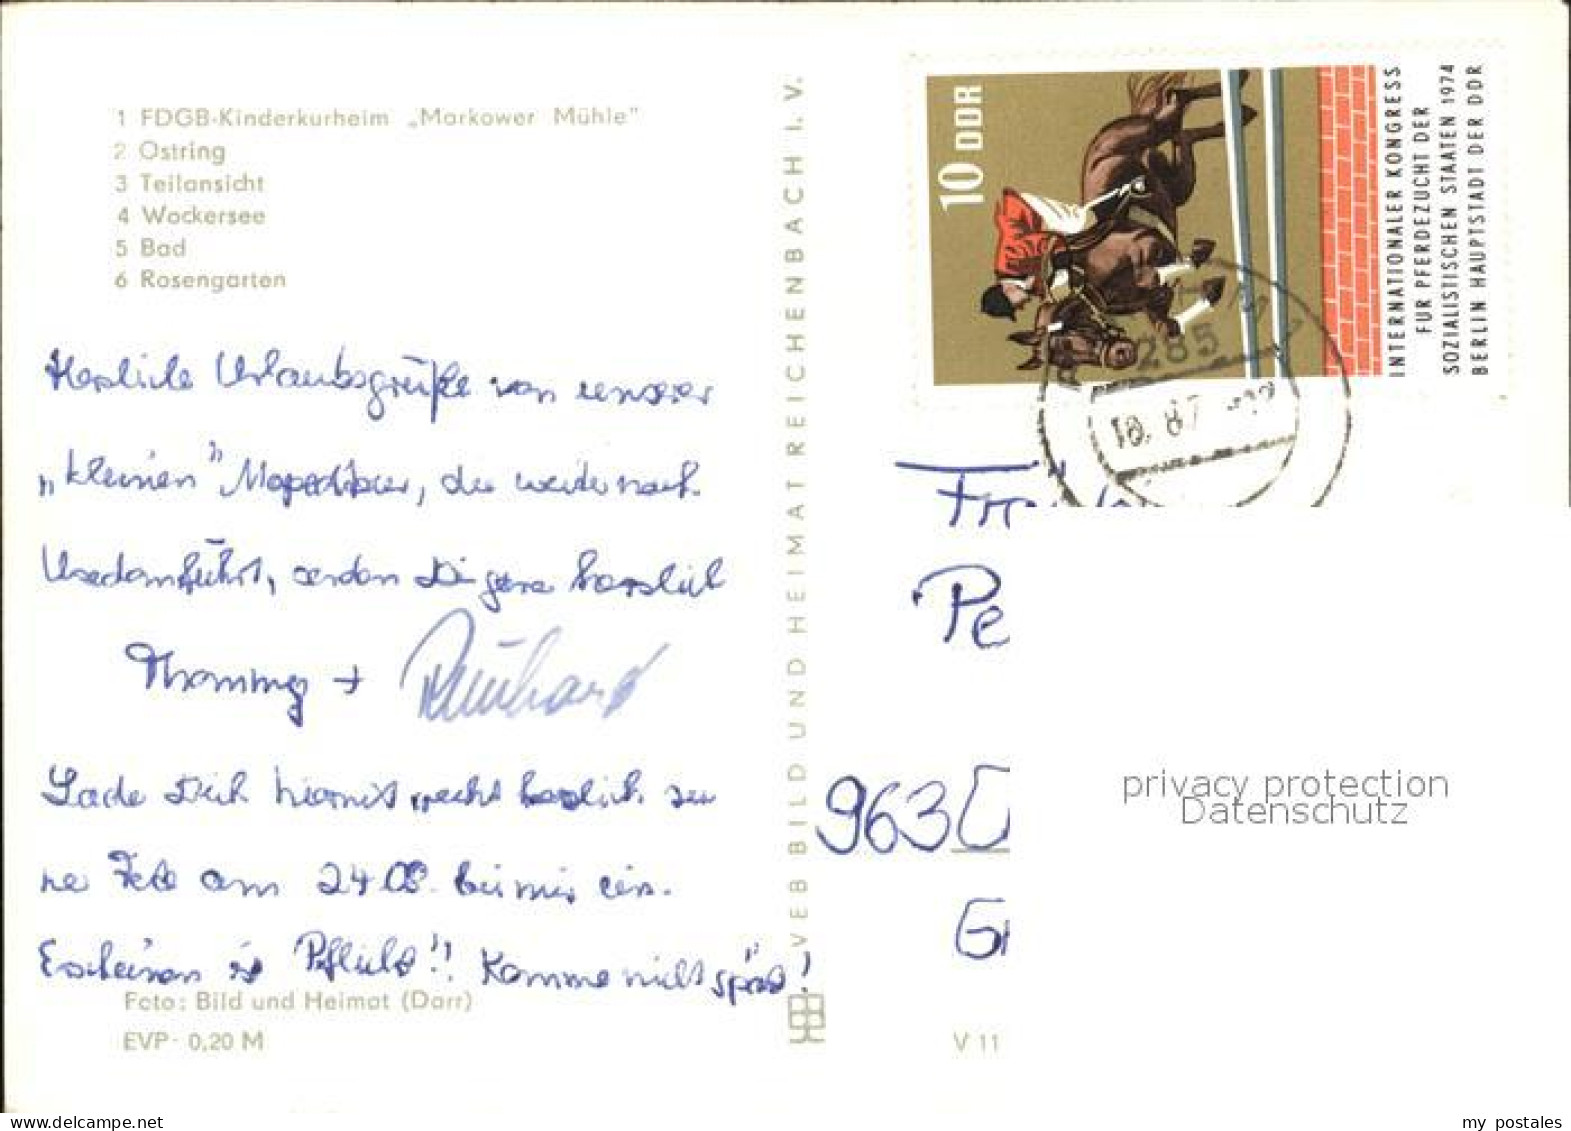 1 FDGB-Kinderkurheim „Markower Mühle"
2 Ostring
3 Teilansicht
4 Wockersee
5 Bad
6 Rosengarten
Herzliche Urlaubsgrüße von unserer
„kleinen" Mopedtour, die weiter nach
Usedom führt, senden Dir ganz herzlich
Thommy + Reinhard
Lade Dich hiermit recht herzlich zu
ner Fete am 24.08. bei mir ein.
Erscheinen ist Pflicht!! Komme nicht zu spät!
Foto: Bild und Heimat (Darr)
EVP 0,20 M
VEB BILD UND HEIMAT REICHENBACH I. V.
V 11
10 DDR
INTERNATIONALER KONGRESS
FÜR PFERDEZUCHT DER
SOZIALISTISCHEN STAATEN 1974
BERLIN HAUPTSTADT DER DDR
285
Pe
963
privacy protection
Datenschutz
my postales